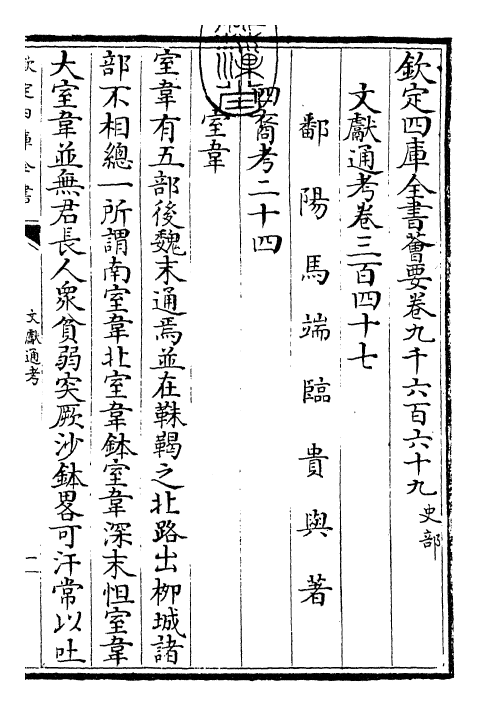 欽定四庫全書薈要卷九千六百六十九 史部
文獻通考卷三百四十七
鄱陽馬端臨貴與著
四裔考二十四
室韋
室韋有五部後魏末通焉並在靺鞨之北路出柳城諸
部不相總一所謂南室韋北室韋鉢室韋深末怛室韋
大室韋並無君長人衆貧弱突厥沙鉢畧可汗常以吐
欽定四庫全書
文獻通考